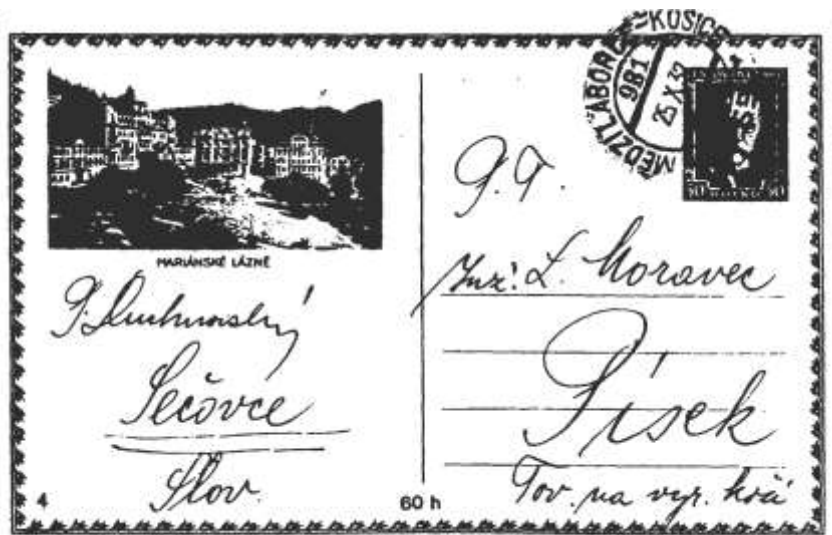 MEDZILABORCE-KOŠICE
981
25.X.32
50 50
MARIÁNSKÉ LÁZNĚ
Sečovce
Slov.
4
60 h
P. T.
Inž. L. Moravec
Písek
Tov. na vyr.